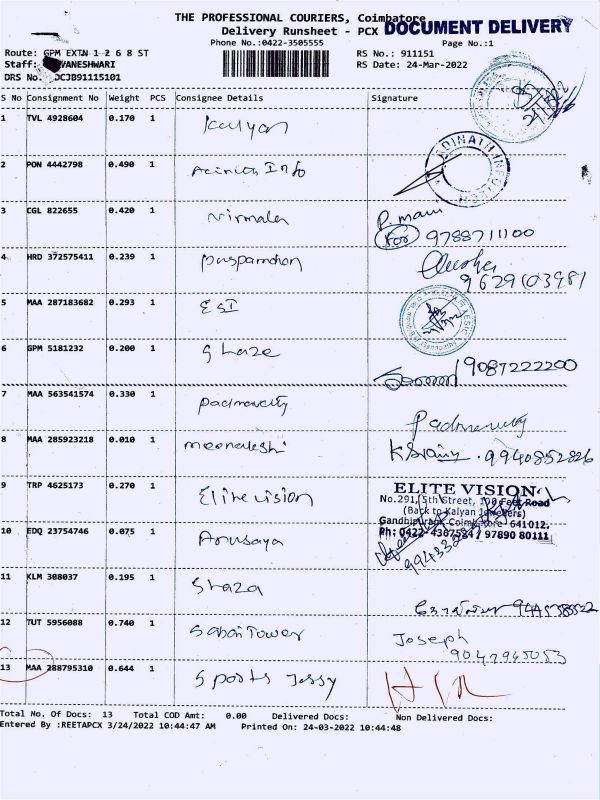 THE PROFESSIONAL COURIERS, Coimbatore
Delivery Runsheet - PCX DOCUMENT DELIVERY
Phone No.:0422-3505555 Page No.:1
Route: GPM EXTN 1 2 6 8 ST RS No.: 911151
Staff: VANESHWARI RS Date: 24-Mar-2022
DRS No. DCJB91115101
S No Consignment No Weight PCS Consignee Details Signature
1 TVL 4928604 0.170 1 Kalyan
2 PON 4442798 0.490 1 Info ADINATH INFOTECH
3 CGL 822655 0.420 1 Nirmala P. mani
For 9788711100
4 HRD 372575411 0.239 1 puspamohan
9629103981
5 MAA 287183682 0.293 1 ESI
6 GPM 5181232 0.200 1 Glaze 9087222200
7 MAA 563541574 0.330 1 padmavathy Padmavathy
8 MAA 285923218 0.010 1 meenakshi 9940852826
9 TRP 4625173 0.270 1 Elite vision ELITE VISION
No.291, 5th Street, 100 Feet Road
(Back to Kalyan Jewellers)
Gandhipuram, Coimbatore - 641012.
10 EDQ 23754746 0.075 1 Ph: 0422- 4367534 / 97890 80111
11 KLM 308037 0.195 1
12 TUT 5956088 0.740 1 Tower Joseph
9047945053
13 MAA 288795310 0.644 1 Sports Jessy
Total No. Of Docs: 13 Total COD Amt: 0.00 Delivered Docs: Non Delivered Docs:
Entered By :REETAPCX 3/24/2022 10:44:47 AM Printed On: 24-03-2022 10:44:48